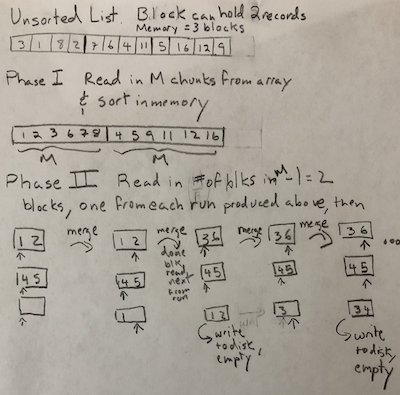 Unsorted List. Block can hold 2 records
Memory = 3 blocks
3 1 8 2 7 6 4 11 5 16 12 9
Phase I Read in M chunks from array
& sort in memory
1 2 3 6 7 8 4 5 9 11 12 16
M M
Phase II Read in # of blks in M - 1 = 2
blocks, one from each run produced above, then
merge merge merge merge
1 2 1 2 3 6 3 6 3 6 ...
done
blk
read
next
from
run
4 5 4 5 4 5 4 5 4 5
1 1 2 3 3 4
write
to disk,
empty
write
to disk,
empty